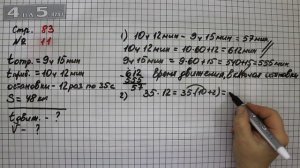 4
5
Стр. 83
№ 11
t отпр. = 9 ч 15 мин
t приб. = 10 ч 12 мин
остановки - 12 раз по 35 с
S = 48 км
t движ. - ?
V - ?
1) 10 ч 12 мин - 9 ч 15 мин = 57 мин
10 ч 12 мин = 10·60+12 = 612 мин
9 ч 15 мин = 9·60+15 = 540+15 = 555 мин
612
555
57
время движения, включая остановки
2) 35·12 = 35·(10+2) =